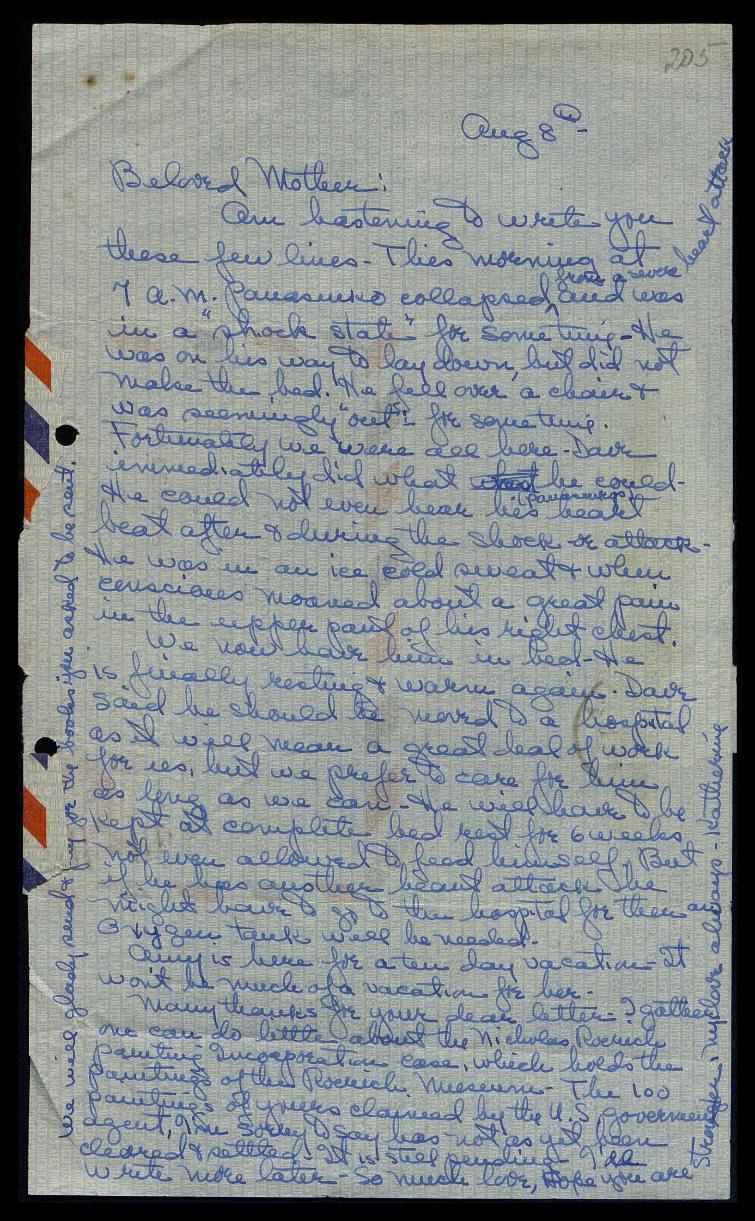 205
Aug 8th -
Beloved Mother:
Am hastening to write you
these few lines - This morning at
from a severe heart attack
7 a.m. Panasenko collapsed and was
in a "shock state" for sometime - He
was on his way to lay down, but did not
make the bed. He fell over a chair &
was seemingly "out" for sometime.
Fortunately we were all here - Dave
immediately did what he could -
(panasenko's)
He could not even hear his heart
beat after & during the shock or attack -
He was in an ice cold sweat & when
conscious moaned about a great pain
in the upper part of his right chest.
We now have him in bed - He
is finally resting & warm again. Dave
said he should be moved to a hospital
as it will mean a great deal of work
for us, but we prefer to care for him
as long as we can - He will have to be
kept at complete bed rest for 6 weeks,
not even allowed to feed himself. But
if he has another heart attack he
might have to go to the hospital for then an
Oxygen tank will be needed.
Amy is here for a ten day vacation - It
won't be much of a vacation for her -
Many thanks for your dear letter - I gather
one can do little about the Nicholas Roerich
painting Incorporation case, which holds the
paintings of the Roerich Museum - The 100
paintings of yours claimed by the U.S. government
agent, I'm sorry to say has not as yet been
cleared & settled - It is still pending. I'll
write more later - So much love, Hope you are
stronger. My love always - Katherine
We will gladly send & pay for the books you asked to be sent.